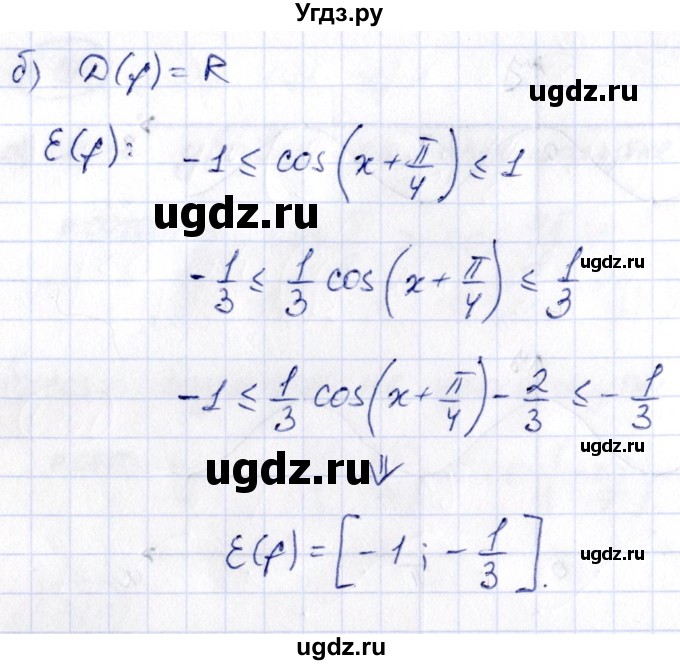 Угдз.ру
б) D(f) = R
ugdz.ru
E(f): -1 ≤ cos(x + π/4) ≤ 1
ugdz.ru
-1/3 ≤ 1/3 cos(x + π/4) ≤ 1/3
ugdz.ru
-1 ≤ 1/3 cos(x + π/4) - 2/3 ≤ -1/3
ugdz.ru
⇓
E(f) = [-1; -1/3].
ugdz.ru
ugdz.ru